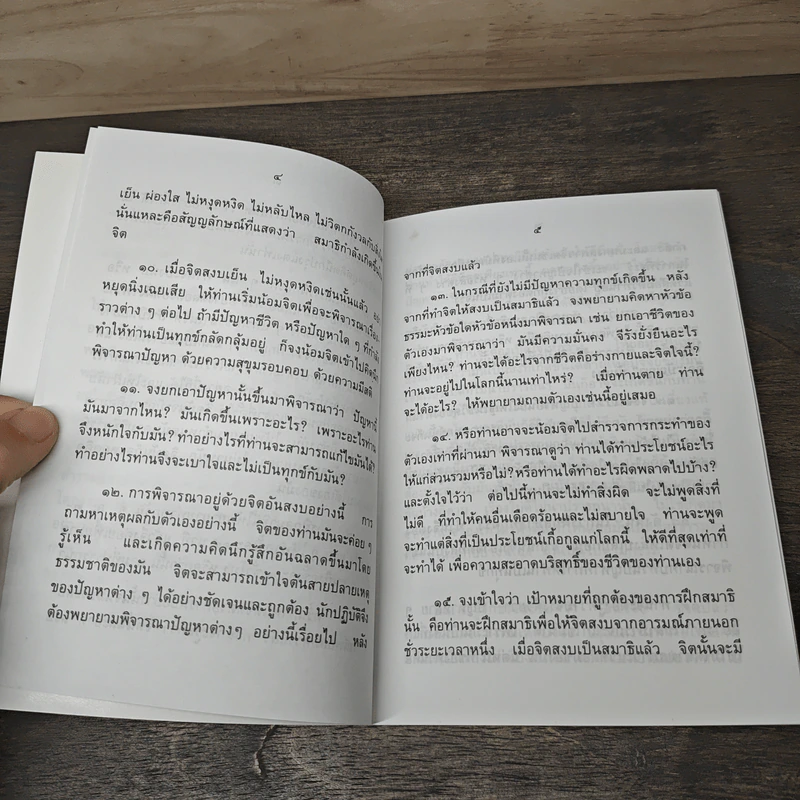 ๔
เย็น ผ่องใส ไม่หงุดหงิด ไม่หลับไหล ไม่วิตกกังวลกับ
นั่นแหละคือสัญญลักษณ์ที่แสดงว่า สมาธิกำลังเกิดขึ้น
จิต
๑๐. เมื่อจิตสงบเย็น ไม่หงุดหงิดเช่นนั้นแล้ว อย่า
หยุดนิ่งเฉยเสีย ให้ท่านเริ่มน้อมจิตเพื่อจะพิจารณาเรื่อง
ราวต่าง ๆ ต่อไป ถ้ามีปัญหาชีวิต หรือปัญหาใด ๆ ที่กำลัง
ทำให้ท่านเป็นทุกข์กลัดกลุ้มอยู่ ก็จงน้อมจิตเข้าไปคิดนึก
พิจารณาปัญหา ด้วยความสุขุมรอบคอบ ด้วยความมีสติ
๑๑. จงยกเอาปัญหานั้นขึ้นมาพิจารณาว่า ปัญหานี้
มันมาจากไหน? มันเกิดขึ้นเพราะอะไร? เพราะอะไรท่าน
จึงหนักใจกับมัน? ทำอย่างไรที่ท่านจะสามารถแก้ไขมันได้?
ทำอย่างไรท่านจึงจะเบาใจและไม่เป็นทุกข์กับมัน?
๑๒. การพิจารณาอยู่ด้วยจิตอันสงบอย่างนี้ การ
ถามหาเหตุผลกับตัวเองอย่างนี้ จิตของท่านมันจะค่อย ๆ
รู้เห็น และเกิดความคิดนึกรู้สึกอันฉลาดขึ้นมาโดย
ธรรมชาติของมัน จิตจะสามารถเข้าใจต้นสายปลายเหตุ
ของปัญหาต่าง ๆ ได้อย่างชัดเจนและถูกต้อง นักปฏิบัติจึง
ต้องพยายามพิจารณาปัญหาต่างๆ อย่างนี้เรื่อยไป หลัง
๕
จากที่จิตสงบแล้ว
๑๓. ในกรณีที่ยังไม่มีปัญหาความทุกข์เกิดขึ้น หลัง
จากที่ทำจิตให้สงบเป็นสมาธิแล้ว จงพยายามคิดหาหัวข้อ
ธรรมะหัวข้อใดหัวข้อหนึ่งมาพิจารณา เช่น ยกเอาชีวิตของ
ตัวเองมาพิจารณาว่า มันมีความมั่นคง จีรังยั่งยืนอะไร
เพียงไหน? ท่านจะได้อะไรจากชีวิตคือร่างกายและจิตใจนี้?
ท่านจะอยู่ไปในโลกนี้นานเท่าไหร่? เมื่อท่านตาย ท่าน
จะได้อะไร? ให้พยายามถามตัวเองเช่นนี้อยู่เสมอ
๑๔. หรือท่านอาจจะน้อมจิตไปสำรวจการกระทำของ
ตัวเองเท่าที่ผ่านมา พิจารณาดูว่า ท่านได้ทำประโยชน์อะไร
ให้แก่ส่วนรวมหรือไม่? หรือท่านได้ทำอะไรผิดพลาดไปบ้าง?
และตั้งใจไว้ว่า ต่อไปนี้ท่านจะไม่ทำสิ่งผิด จะไม่พูดสิ่งที่
ไม่ดี ที่ทำให้คนอื่นเดือดร้อนและไม่สบายใจ ท่านจะพูด
จะทำแต่สิ่งที่เป็นประโยชน์เกื้อกูลแก่โลกนี้ ให้ดีที่สุดเท่าที่
จะทำได้ เพื่อความสะอาดบริสุทธิ์ของชีวิตของท่านเอง
๑๕. จงเข้าใจว่า เป้าหมายที่ถูกต้องของการฝึกสมาธิ
นั้น คือท่านจะฝึกสมาธิเพื่อให้จิตสงบจากอารมณ์ภายนอก
ชั่วระยะเวลาหนึ่ง เมื่อจิตสงบเป็นสมาธิแล้ว จิตนั้นจะมี